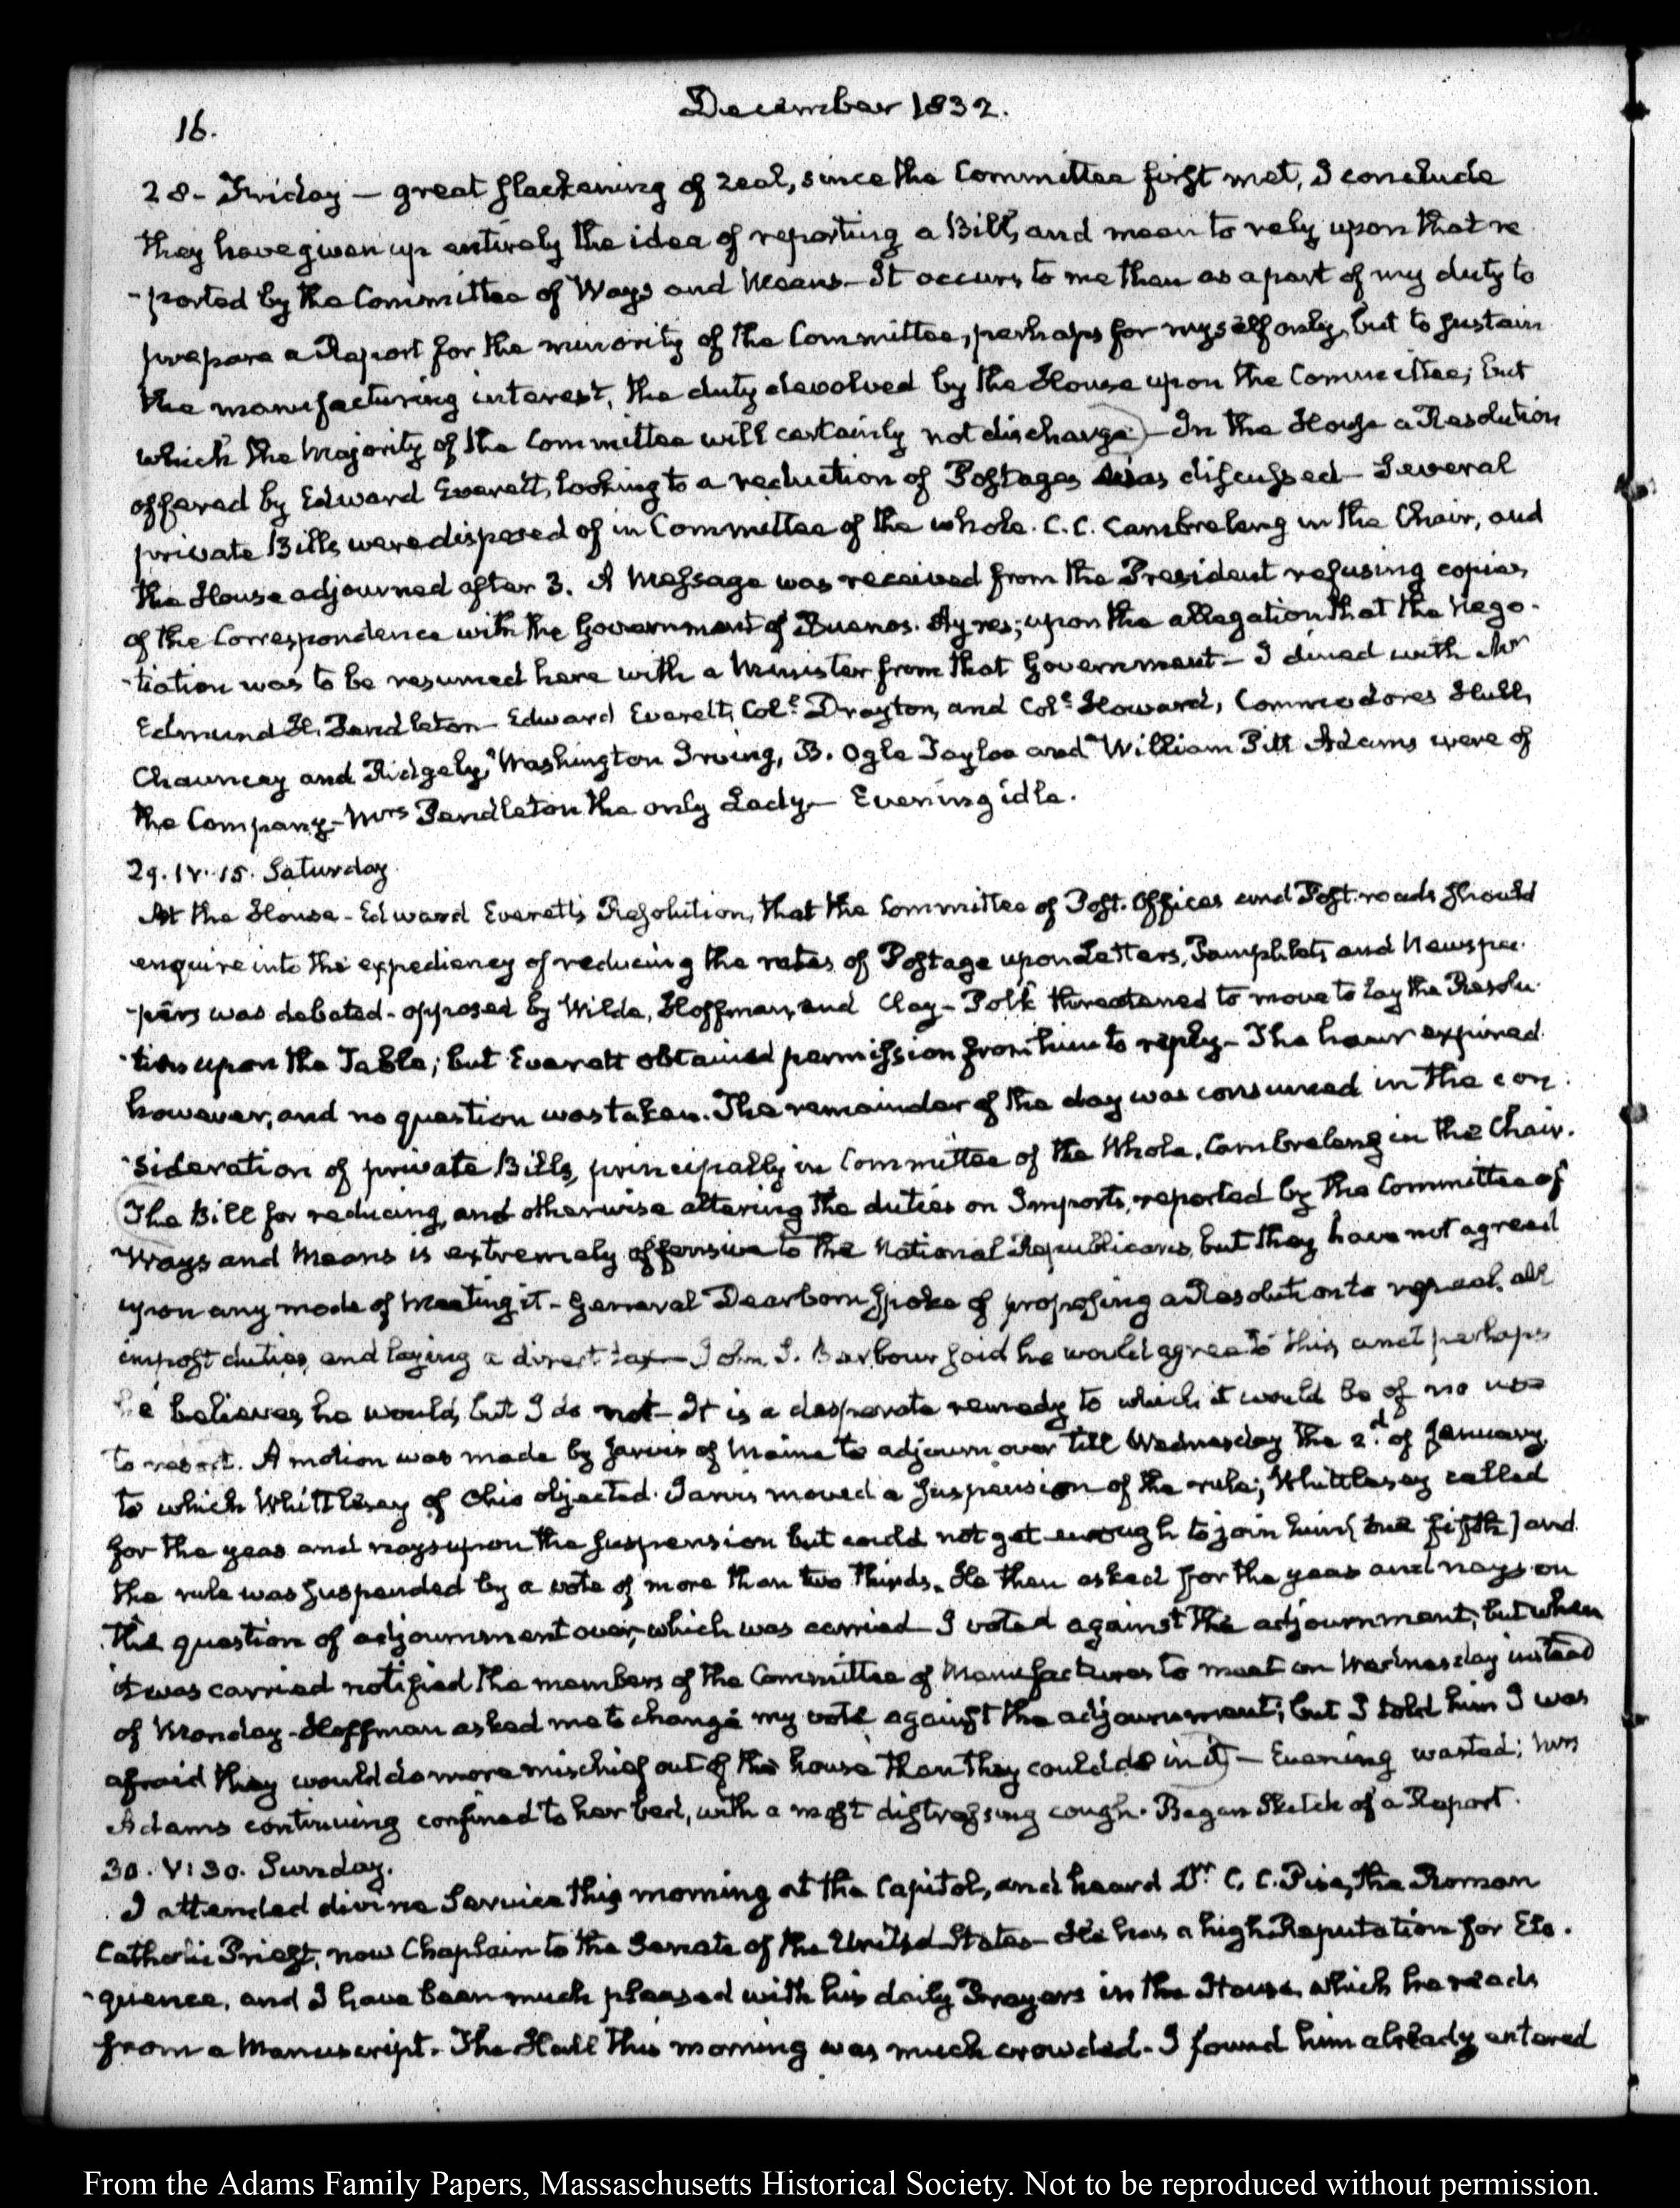 December 1832.
16.
28- Friday — great slackening of zeal, since the Committee first met, I conclude
they have given up entirely the idea of reporting a Bill, and mean to rely upon that re
-ported by the Committee of Ways and Means- It occurs to me then as a part of my duty to
prepare a Report for the minority of the Committee, perhaps for myself only, but to sustain
the manufacturing interest, the duty devolved by the House upon the Committee; but
which the Majority of the Committee will certainly not discharge)- In the House a Resolution
offered by Edward Everett, looking to a reduction of Postages was discussed- Several
private Bills were disposed of in Committee of the whole. C. C. Cambreleng in the Chair, and
the House adjourned after 3. A Message was received from the President refusing copies
of the Correspondence with the Government of Buenos. Ayres; upon the allegation that the Nego-
-tiation was to be resumed here with a Minister from that Government- I dined with Mr
Edmund H. Pendleton- Edward Everett, Col.l Drayton, and Col.l Howard, Commodores Hull,
Chauncey and Ridgely, Washington Irving, B. Ogle Tayloe and William Pitt Adams were of
the Company- Mrs Pendleton the only Lady- Evening idle.
29. IV. 15. Saturday
At the House- Edward Everett's Resolution, that the Committee of Post. Offices and Post-roads should
enquire into the expediency of reducing the rates of Postage upon Letters, Pamphlets and Newspa-
-pers was debated- opposed by Wilde, Hoffman, and Clay- Polk threatened to move to lay the Resolu-
-tion upon the Table; but Everett obtained permission from him to reply- The hour expired
however, and no question was taken. The remainder of the day was consumed in the con-
-sideration of private Bills, principally in Committee of the Whole. Cambreleng in the Chair.
(The Bill for reducing, and otherwise altering the duties on Imports, reported by the Committee of
Ways and Means is extremely offensive to the National Republicans, but they have not agreed
upon any mode of meeting it- General Dearborn spoke of proposing a Resolution to repeal all
impost duties, and laying a direct tax- John S. Barbour said he would agree to this, and perhaps
he believes he would, but I do not- It is a desperate remedy to which it would be of no use
to resort. A motion was made by Jarvis of Maine to adjourn over till Wednesday the 2.d of January,
to which Whittlesey of Ohio objected. Jarvis moved a suspension of the rule; Whittlesey called
for the yeas and nays upon the suspension but could not get enough to join him (one fifth) and
the rule was suspended by a vote of more than two thirds. He then asked for the yeas and nays on
the question of adjournment over, which was carried- I voted against the adjournment, but when
it was carried notified the members of the Committee of Manufactures to meet on Wednesday instead
of Monday- Hoffman asked me to change my vote against the adjournment; but I told him I was
afraid they would do more mischief out of the house than they could do in it)- Evening wasted; Mrs
Adams continuing confined to her bed, with a most distressing cough. Began Sketch of a Report.
30. V:30. Sunday.
I attended divine Service this morning at the Capitol, and heard Dr. C. C. Pise, the Roman
Catholic Priest, now Chaplain to the Senate of the United States- He has a high Reputation for Elo-
-quence, and I have been much pleased with his daily Prayers in the House, which he reads
from a Manuscript. The Hall this morning was much crowded- I found him already entered
From the Adams Family Papers, Massachusetts Historical Society. Not to be reproduced without permission.